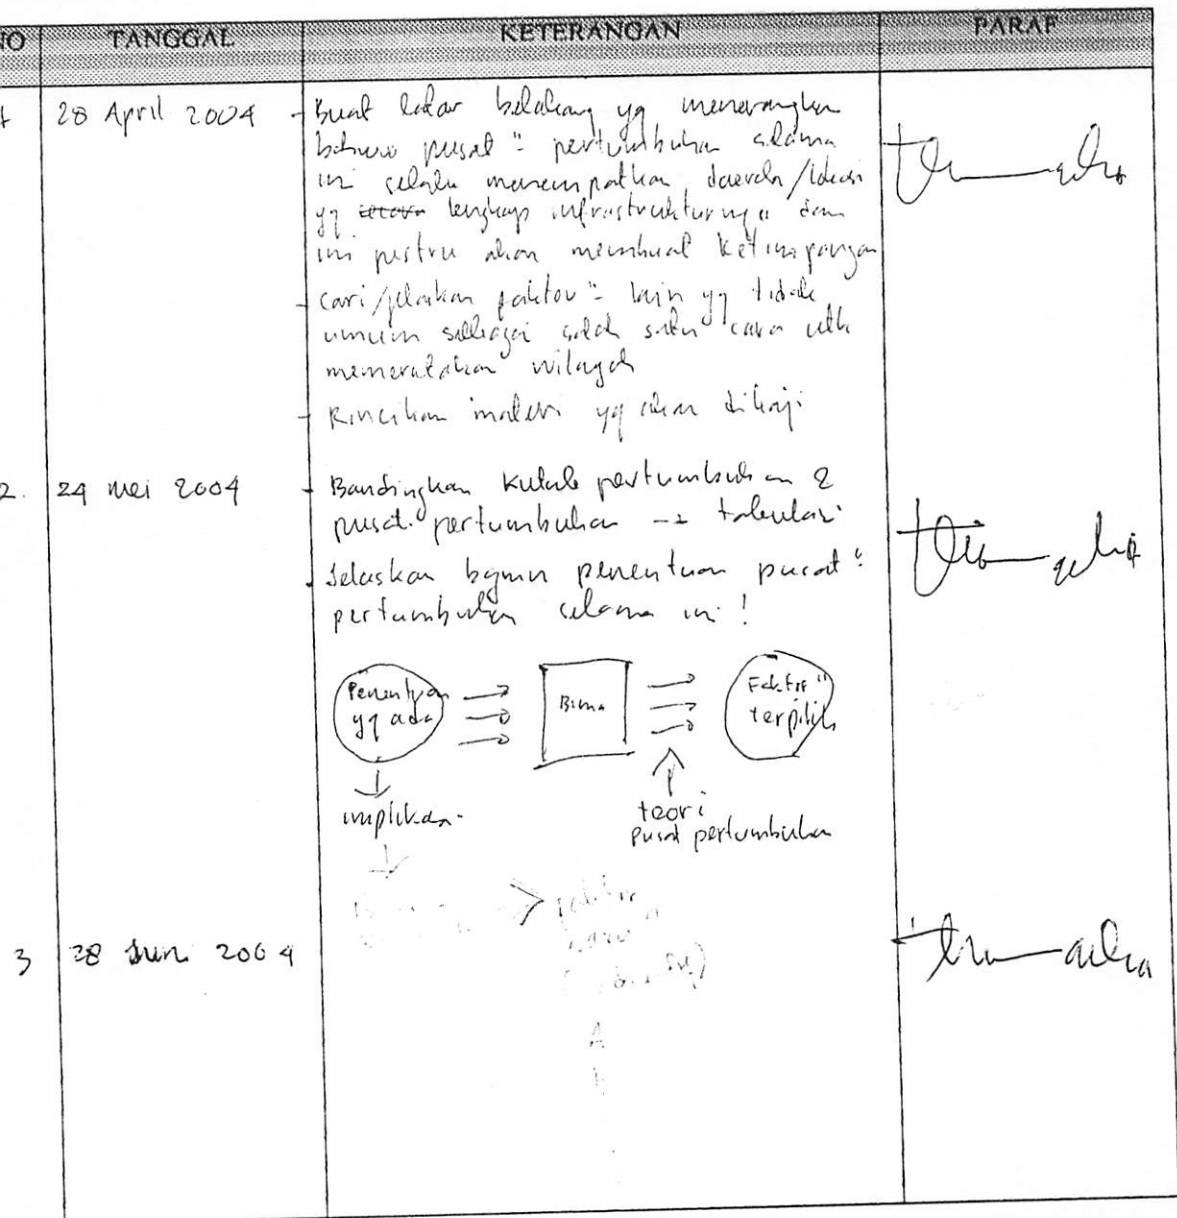 NO TANGGAL KETERANGAN PARAF
28 April 2004 - Buat latar belakang yg menerangkan
bahwa pusat" pertumbuhan selama
ini selalu menempatkan daerah/lokasi
yg secara lengkap infrastrukturnya dan
ini justru akan membuat ketimpangan
- cari/jelaskan faktor" lain yg tidak
umum sebagai salah satu cara utk
memeratakan wilayah
- Rincikan materi yg akan dikaji
2. 24 Mei 2004 - Bandingkan pertumbuhan 2
pusat pertumbuhan → tabulasi
- Jelaskan bgmn penentuan pusat"
pertumbuhan selama ini!
Penentuan
yg ada
Bima
Faktor"
terpilih
implikasi
teori
pusat pertumbuhan
faktor
3 28 Juni 2004
A